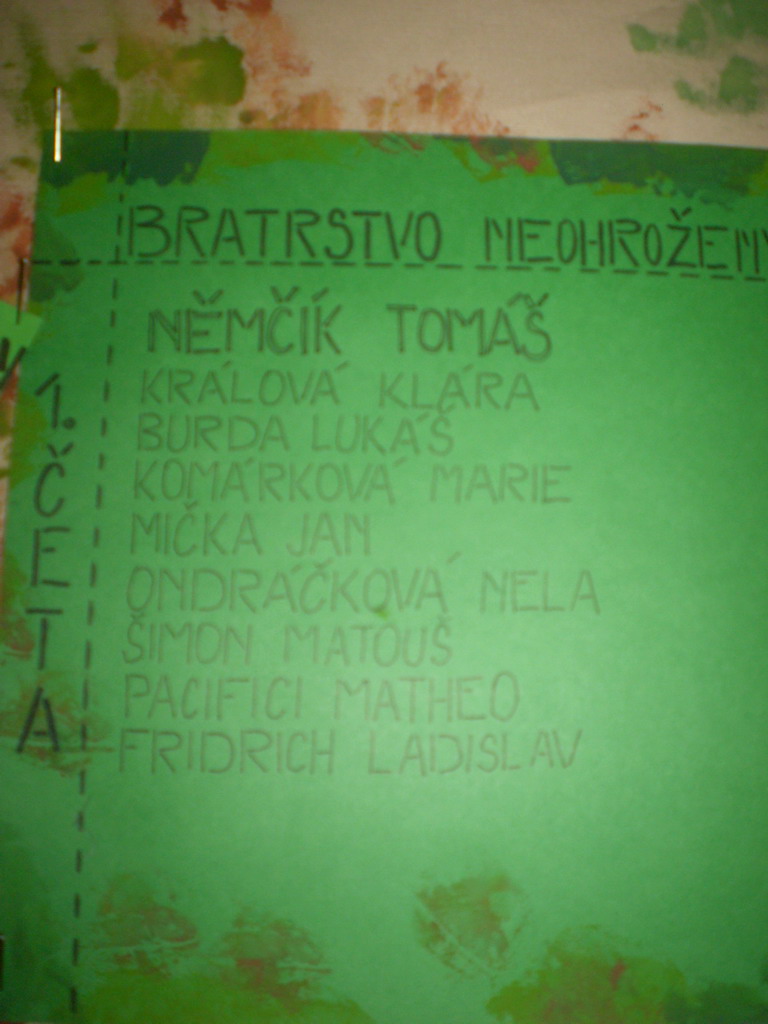 BRATRSTVO
1. ČETA
NĚMČÍK TOMÁŠ
KRÁLOVÁ KLÁRA
BURDA LUKÁŠ
KOMÁRKOVÁ MARIE
MIČKA JAN
ONDRÁČKOVÁ NELA
ŠIMON MATOUŠ
PACIFICI MATHEO
FRIDRICH LADISLAV